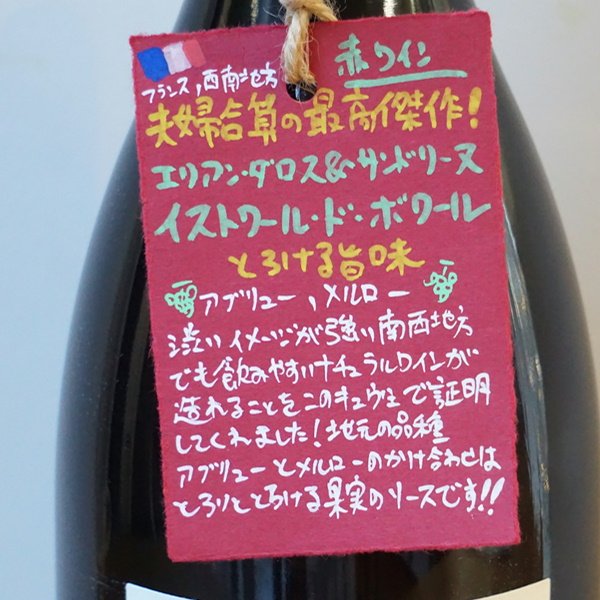 赤ワイン
フランス,西南地方
夫婦合算の最高傑作!
エリアン・ダロス&サンドリーヌ
イストワール・ド・ボワール
とろける旨味
アブリュー、メルロー
渋いイメージが強い南西地方
でも飲みやすいナチュラルワインが
造れることをこのキュヴェで証明
してくれました!地元の品種
アブリューとメルローのかけ合わせは
とろりととろける果実のソースです!!